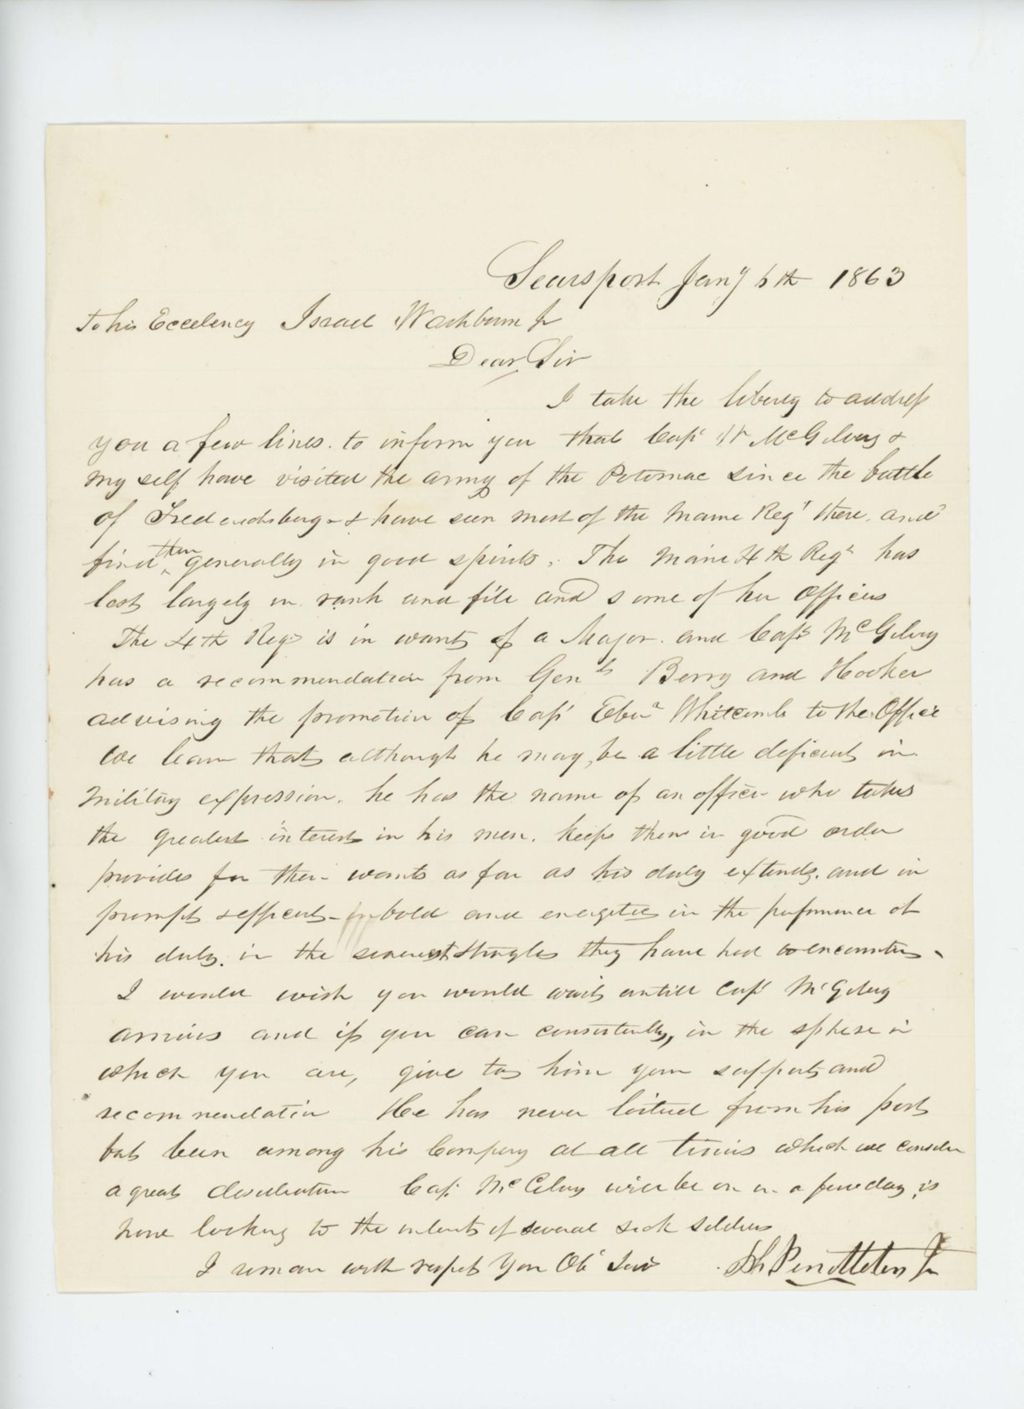 Searsport Jany 6th 1863
To his Eccelency Israel Washburn Jr
Dear Sir
I take the liberty to address
you a few lines. to inform you that Capt Wm McGilvery &
my self have visited the army of the Potomac since the battle
of Fredericksburg - & have seen most of the Maine Regt there. and
find them generally in good spirits. The Maine 4th Regt has
lost largely in rank and file and some of her Officers
The 4th Regt is in want of a Major. and Capt McGilvery
has a recommendation from Genls Berry and Hooker
advising the promotion of Capt Ebenr Whitcomb to the Office
We learn that although he may, be a little deficient in
military expression. he has the name of an officer who takes
the greatest interest in his men. keeps them in good order
provides for their wants as far as his duty extends. and in
prompt & efficent - bold and energetic in the performance of
his duty. in the severest struggles they have had to encounter.
I would wish you would wait untill Capt McGilvery
arrives and if you can consistently, in the sphere in
which you are, give to him your support and
recommendation He has never loitued from his post
but been among his Company at all times which we consider
a great Capt McGilvery will be on in a few days, is
now looking to the intrests of several sick soldiers
I remain with respect Your Obt Servt Pendleton Jr